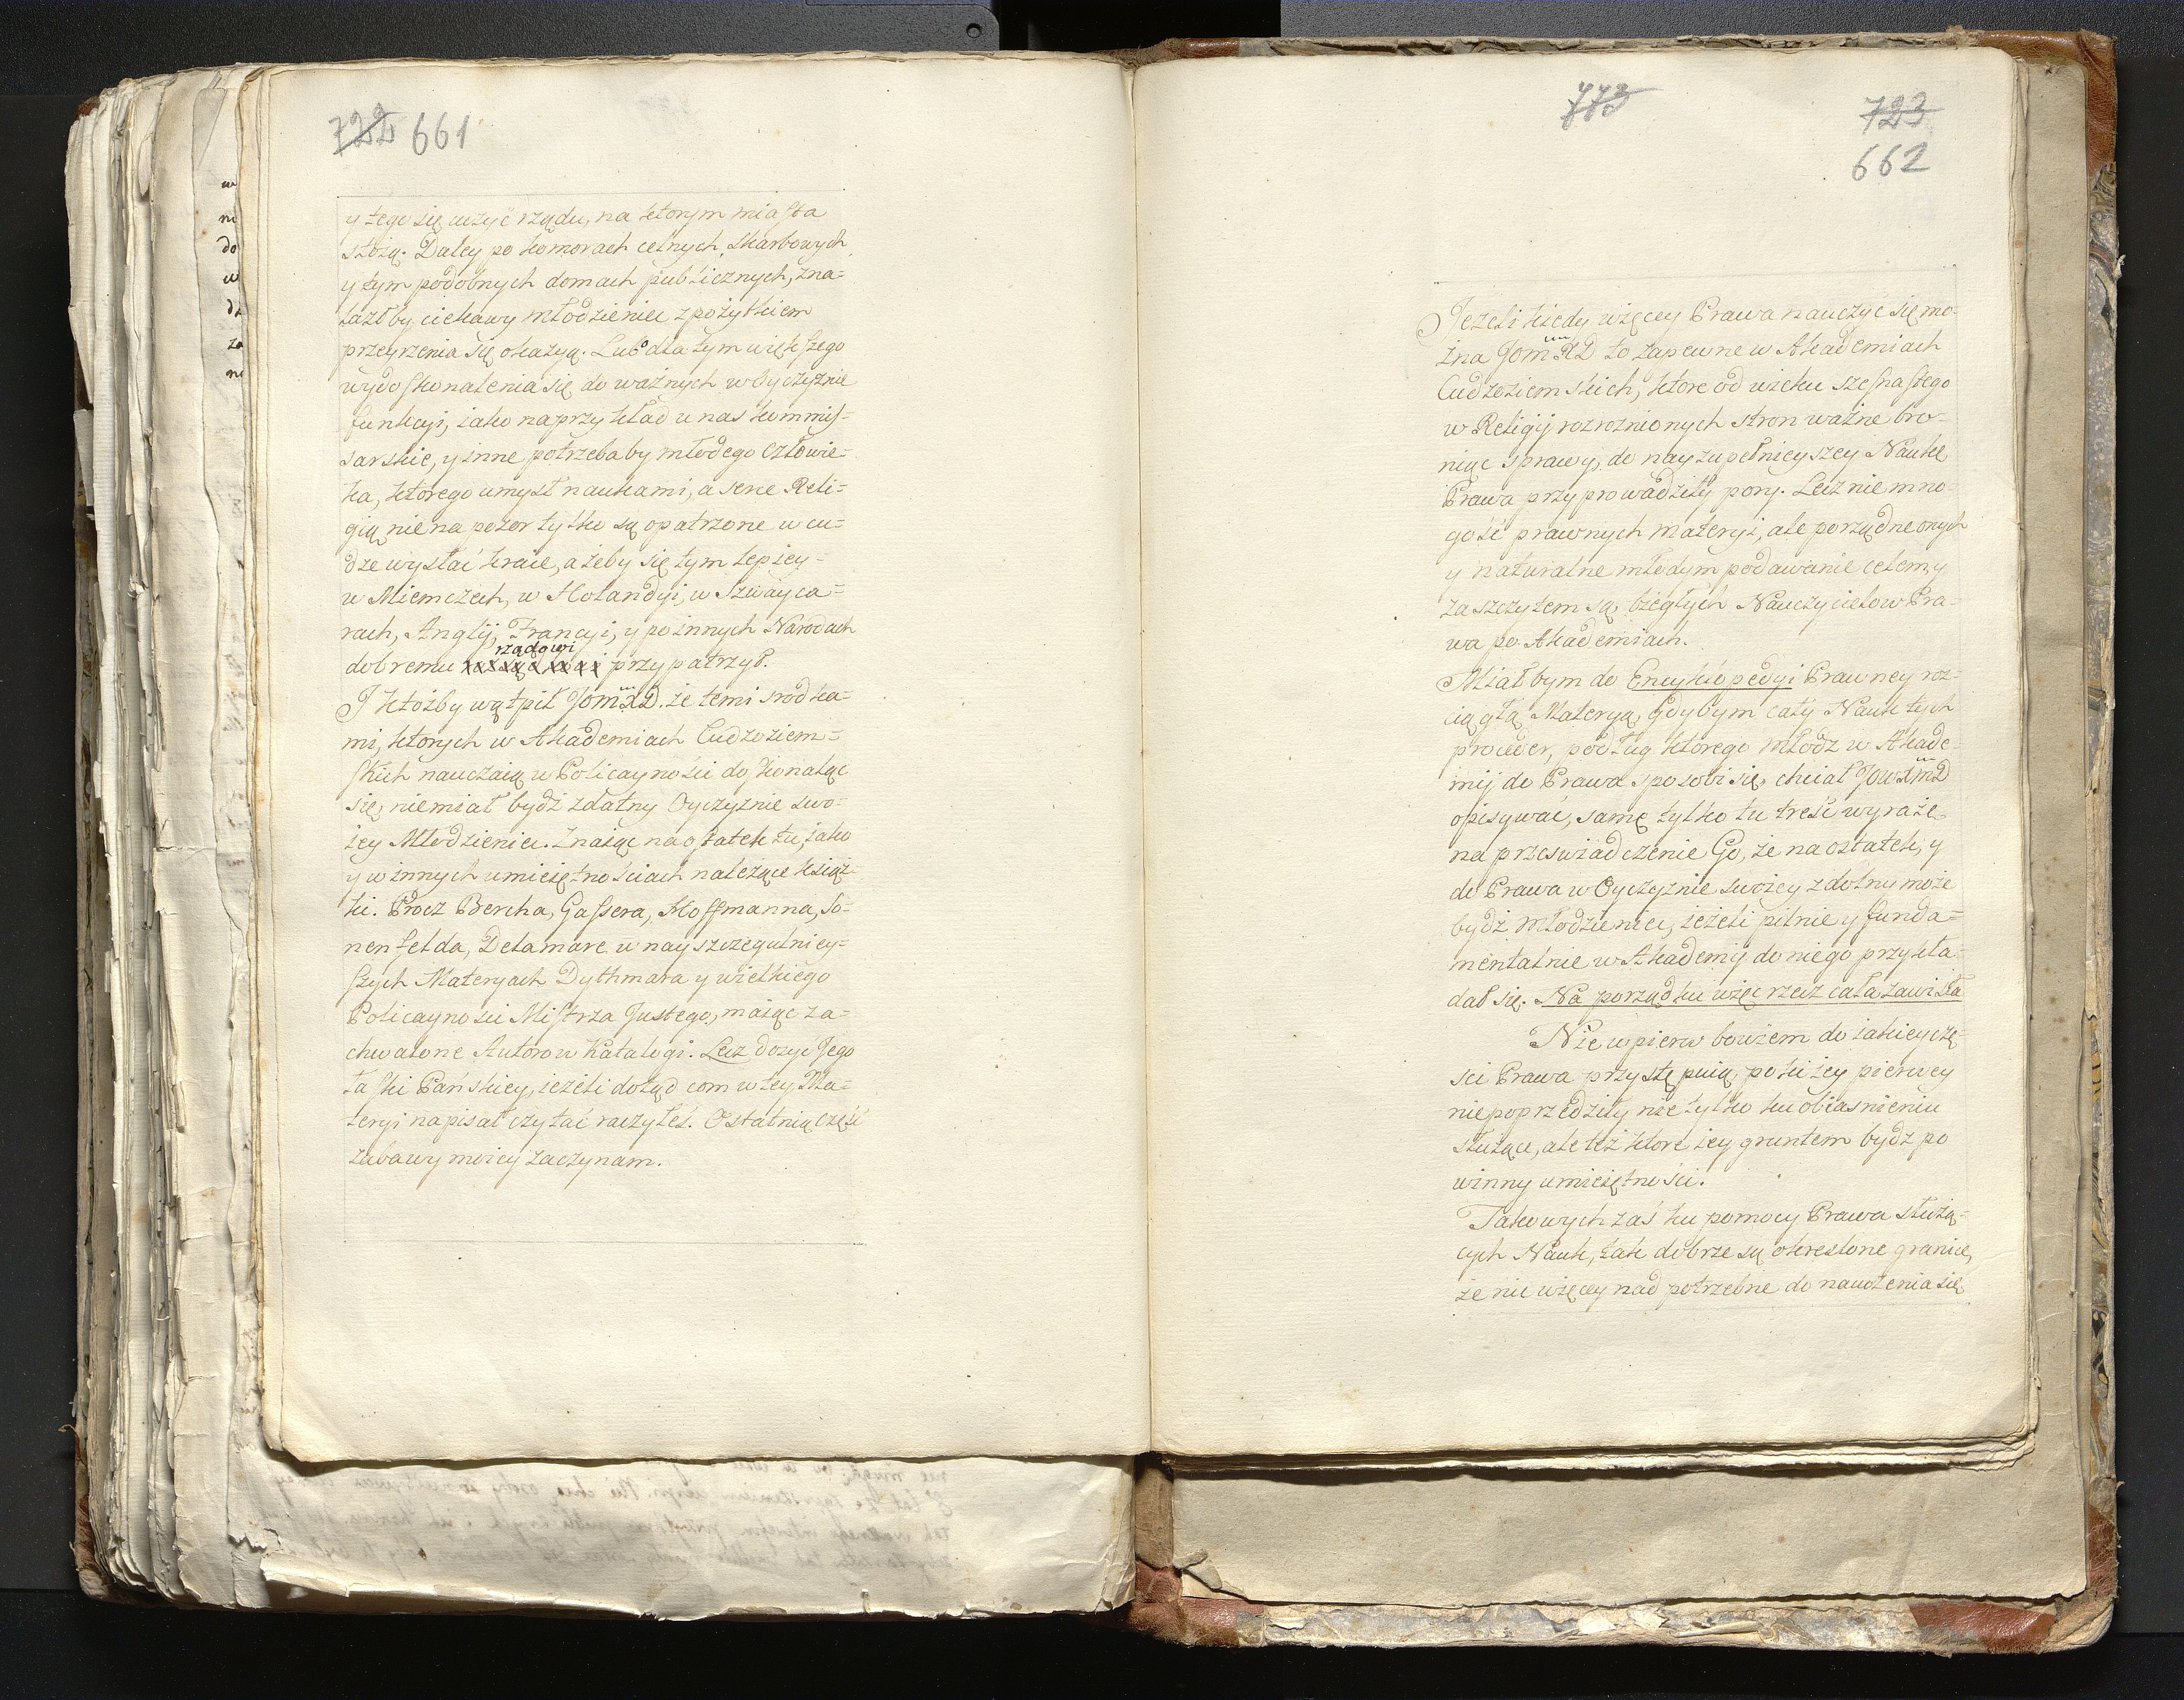 722 661
y tego się uczyć rządu, na ktorym miasta
stożą. Daley po komorach celnych, Skarbowych
y tym podobnych domach publicznych, zna=
lazłby ciekawy młodzieniec z pożytkiem
przeyrzenia się okazyą. Lub dla tym większego
wydoskonalenia się do ważnych w Oyczyznie
funkcyi, iako naprzykład u nas kommis=
sarskie, y inne potrzeba by młodego człowie=
ka, ktorego umysł naukami, a serce Reli=
gią nie na pozor tylko są opatrzone w cu=
dze wysłać kraie, ażeby się tym lepiey=
w Niemczech, w Holandyi, w Szwayca=
rach, Anglij, Francyi, y po innych Narodach
rządowi
dobremu przypatrzył.
I ktożby wątpił JomXD. że temi srodka=
mi, ktorych w Akademiach Cudzoziem=
skich nauczaią w Policayności doskonaląc
się, niemiał bydź zdatny Oyczyznie swo=
iey Młodzieniec. Znaiąc na ostatek tu, iako
y w innych umieiętnościach należące książ=
ki. Procz Bercha, Gassera, Hoffmanna, So=
nenfelda, Delamare w nayszczegulniey=
szych Materyach Dythmara y wielkiego
Policayności Mistrza Justego, maiąc za=
chwalone Autorow Katalogi. Lecz dozyć Jego
łaski Pańskiey, ieżeli dotąd com w tey Ma=
teryi napisał czytać raczyłeś. Ostatnią część
zabawy moiey zaczynam.
773 723
662
Jezeli kiedy więcey Prawa nauczyć się mo=
żna JomXD to zapewne w Akademiach
Cudzoziemskich, ktore od wieku szesnastego
w Religij rozroznionych stron ważne bro=
niąc sprawy, do nayzupełnieyszey Naukę
Prawa przyprowadziły pory. Lecz nie mno=
gość prawnych materyi, ale porządne onych
y naturalne młodym podawanie celem, y
zaszczytem są biegłych Nauczycielow Pra=
wa po Akademiach.
Miałbym do Encyklopedyi Prawney roz=
ciągłą Materyą, gdybym cały Nauk tych
proceder, podług ktorego młodz w Akade=
mij do Prawa sposobi się, chciał JowXmD
opisywać, samę tylko tu treść wyrażę
na przeswiadczenie Go, że na ostatek, y
do Prawa w Oyczyznie swoiey zdolny może
bydź młodzieniec, ieżeli pilnie y funda=
mentalnie w Akademij do niego przykła=
dał się. Na porządku więc rzecz cała zawisła
Nie w pierw bowiem do iakiey czę=
sci Prawa przystępuią, poki iey pierwey
niepoprzedziły nie tylko ku obiasnieniu
służące, ale też ktore iey gruntem bydz po
winny umieiętności.
Takowych zaś ku pomocy Prawa służą=
cych Nauk, tak dobrze są okreslone granice,
że nic więcey nad potrzebne do nauczenia się